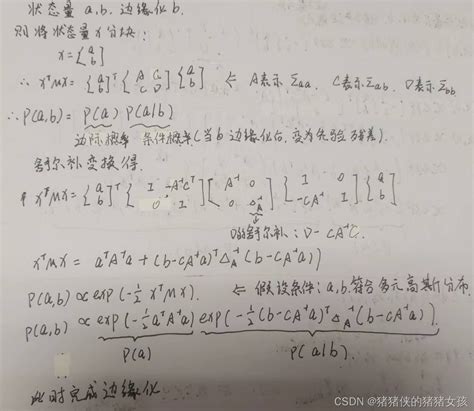 状态量 a,b, 边缘化 b.
则将状态量 x 分块:
x={a b}
∴ xᵀMx = {a b}ᵀ {A C C D} {a b} ← A表示 Σaa, C表示 Σab, D表示 Σbb
∴ P(a,b) = P(a) P(a|b)
边际概率 条件概率 (当 b 边缘化后, 变为先验残差).
舒尔补变换得.
xᵀMx = {a b}ᵀ [I -A⁻¹Cᵀ 0 I] [A⁻¹ 0 0 Δ_A⁻¹] {I 0 -CA⁻¹ I} {a b}
D的舒尔补: D - CA⁻¹C.
xᵀMx = aᵀA⁻¹a + (b-cA⁻¹a)ᵀ Δ_A⁻¹ (b-cA⁻¹a)
P(a,b) ∝ exp(-½ xᵀMx). ← 假设条件: a,b, 符合多元高斯分布.
P(a,b) ∝ exp(-½ aᵀA⁻¹a) exp(-½ (b-cA⁻¹a)ᵀ Δ_A⁻¹ (b-cA⁻¹a)).
P(a) P(a|b).
此时完成边缘化
CSDN @猪猪侠的猪猪女孩